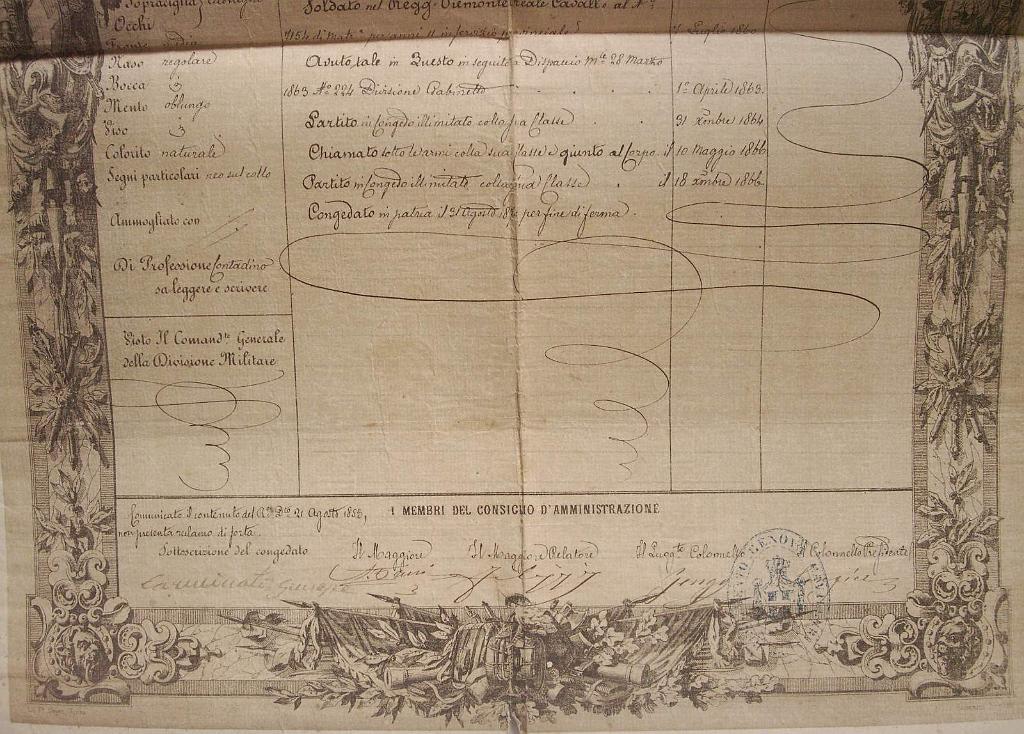 Sopracciglia
Occhi
Fronte
Naso regolare
Bocca
Mento oblungo
Viso
Colorito naturale
Segni particolari neo sul collo
Ammogliato con
Di Professione Contadino
sa leggere e scrivere
Visto Il Comand.te Generale
della Divisione Militare
Soldato nel Regg. Piemonte reale Cavall.a al N.o
7154 di Matr. per anni 11 in servizio provinciale 1 Luglio 1860
Avuto tale in Questo in seguito a Dispaccio M.le 28 Marzo
1863 N.o 224 Divisione Gabinetto . . . . 1.o Aprile 1863.
Partito in Congedo illimitato colla sua Classe . . 31 Xmbre 1864
Chiamato sotto le armi colla sua classe e giunto al Corpo il 10 Maggio 1866
Partito in Congedo illimitato colla sua Classe . il 18 Xmbre 1866
Congedato in patria il 31 Agosto per fine di ferma.
Comunicato il contenuto del R.o D.to 21 Agosto 1853,
non presenta reclamo di sorta.
Sottoscrizione del congedato
I MEMBRI DEL CONSIGLIO D'AMMINISTRAZIONE
Il Maggiore Il Maggiore Relatore Il Luog.te Colonnello Il Colonnello Presidente
GENOVA